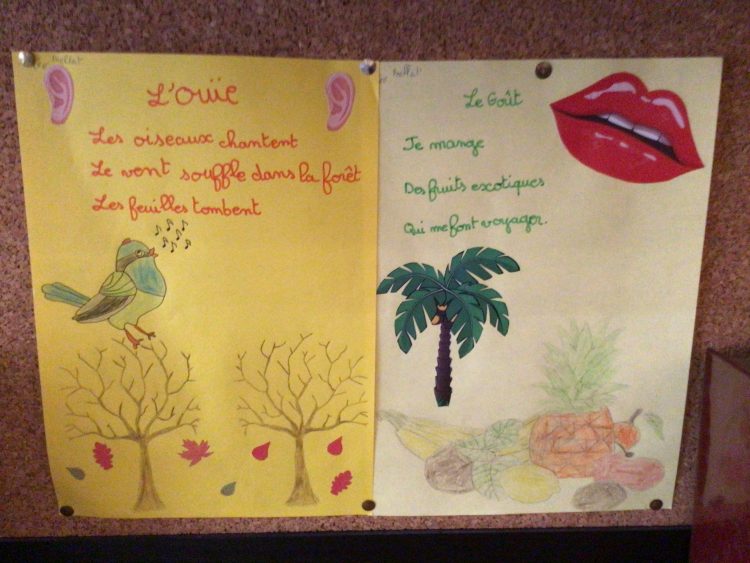 L'ouïe
Les oiseaux chantent
Le vent souffle dans la forêt
Les feuilles tombent
Le Goût
Je mange
Des fruits exotiques
Qui me font voyager.